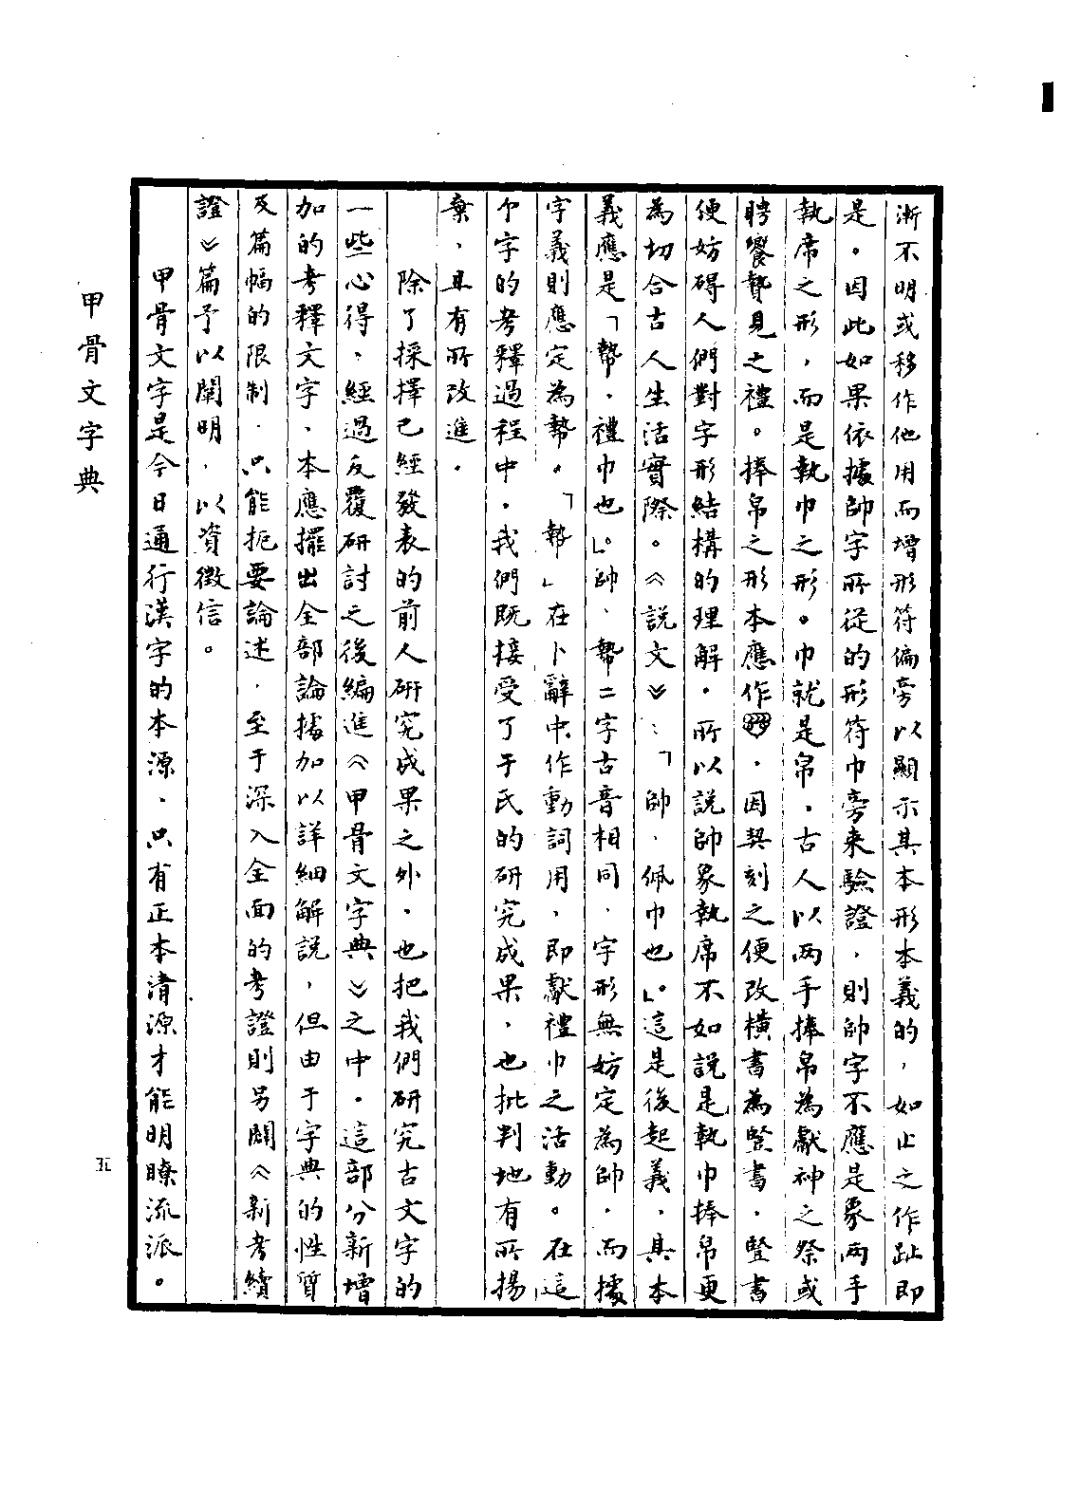 漸不明或移作他用而增形符偏旁以顯示其本形本義的，如止之作趾即
是。因此如果依據帥字所從的形符巾旁來驗證，則帥字不應是象兩手
執席之形，而是執巾之形。巾就是帛，古人以兩手捧帛為獻神之祭或
聘饗贄見之禮。捧帛之形本應作，因契刻之便改橫書為竪書，竪書
便妨碍人們對字形結構的理解，所以說帥象執席不如說是執巾捧帛更
為切合古人生活實際。《說文》：「帥，佩巾也」。這是後起義，其本
義應是「幋，禮巾也」。帥、幋二字古音相同，字形無妨定為帥，而據
字義則應定為幋。「幋」在卜辭中作動詞用，即獻禮巾之活動。在這
个字的考釋過程中，我們既接受了于氏的研究成果，也批判地有所揚
棄，且有所改進。
除了採擇已經發表的前人研究成果之外，也把我們研究古文字的
一些心得，經過反覆研討之後編進《甲骨文字典》之中。這部分新增
加的考釋文字，本應擺出全部論據加以詳細解說，但由于字典的性質
及篇幅的限制，只能扼要論述，至于深入全面的考證則另闢《新考續
證》篇予以闡明，以資徵信。
甲骨文字是今日通行漢字的本源，只有正本清源才能明瞭流派。
甲骨文字典
五